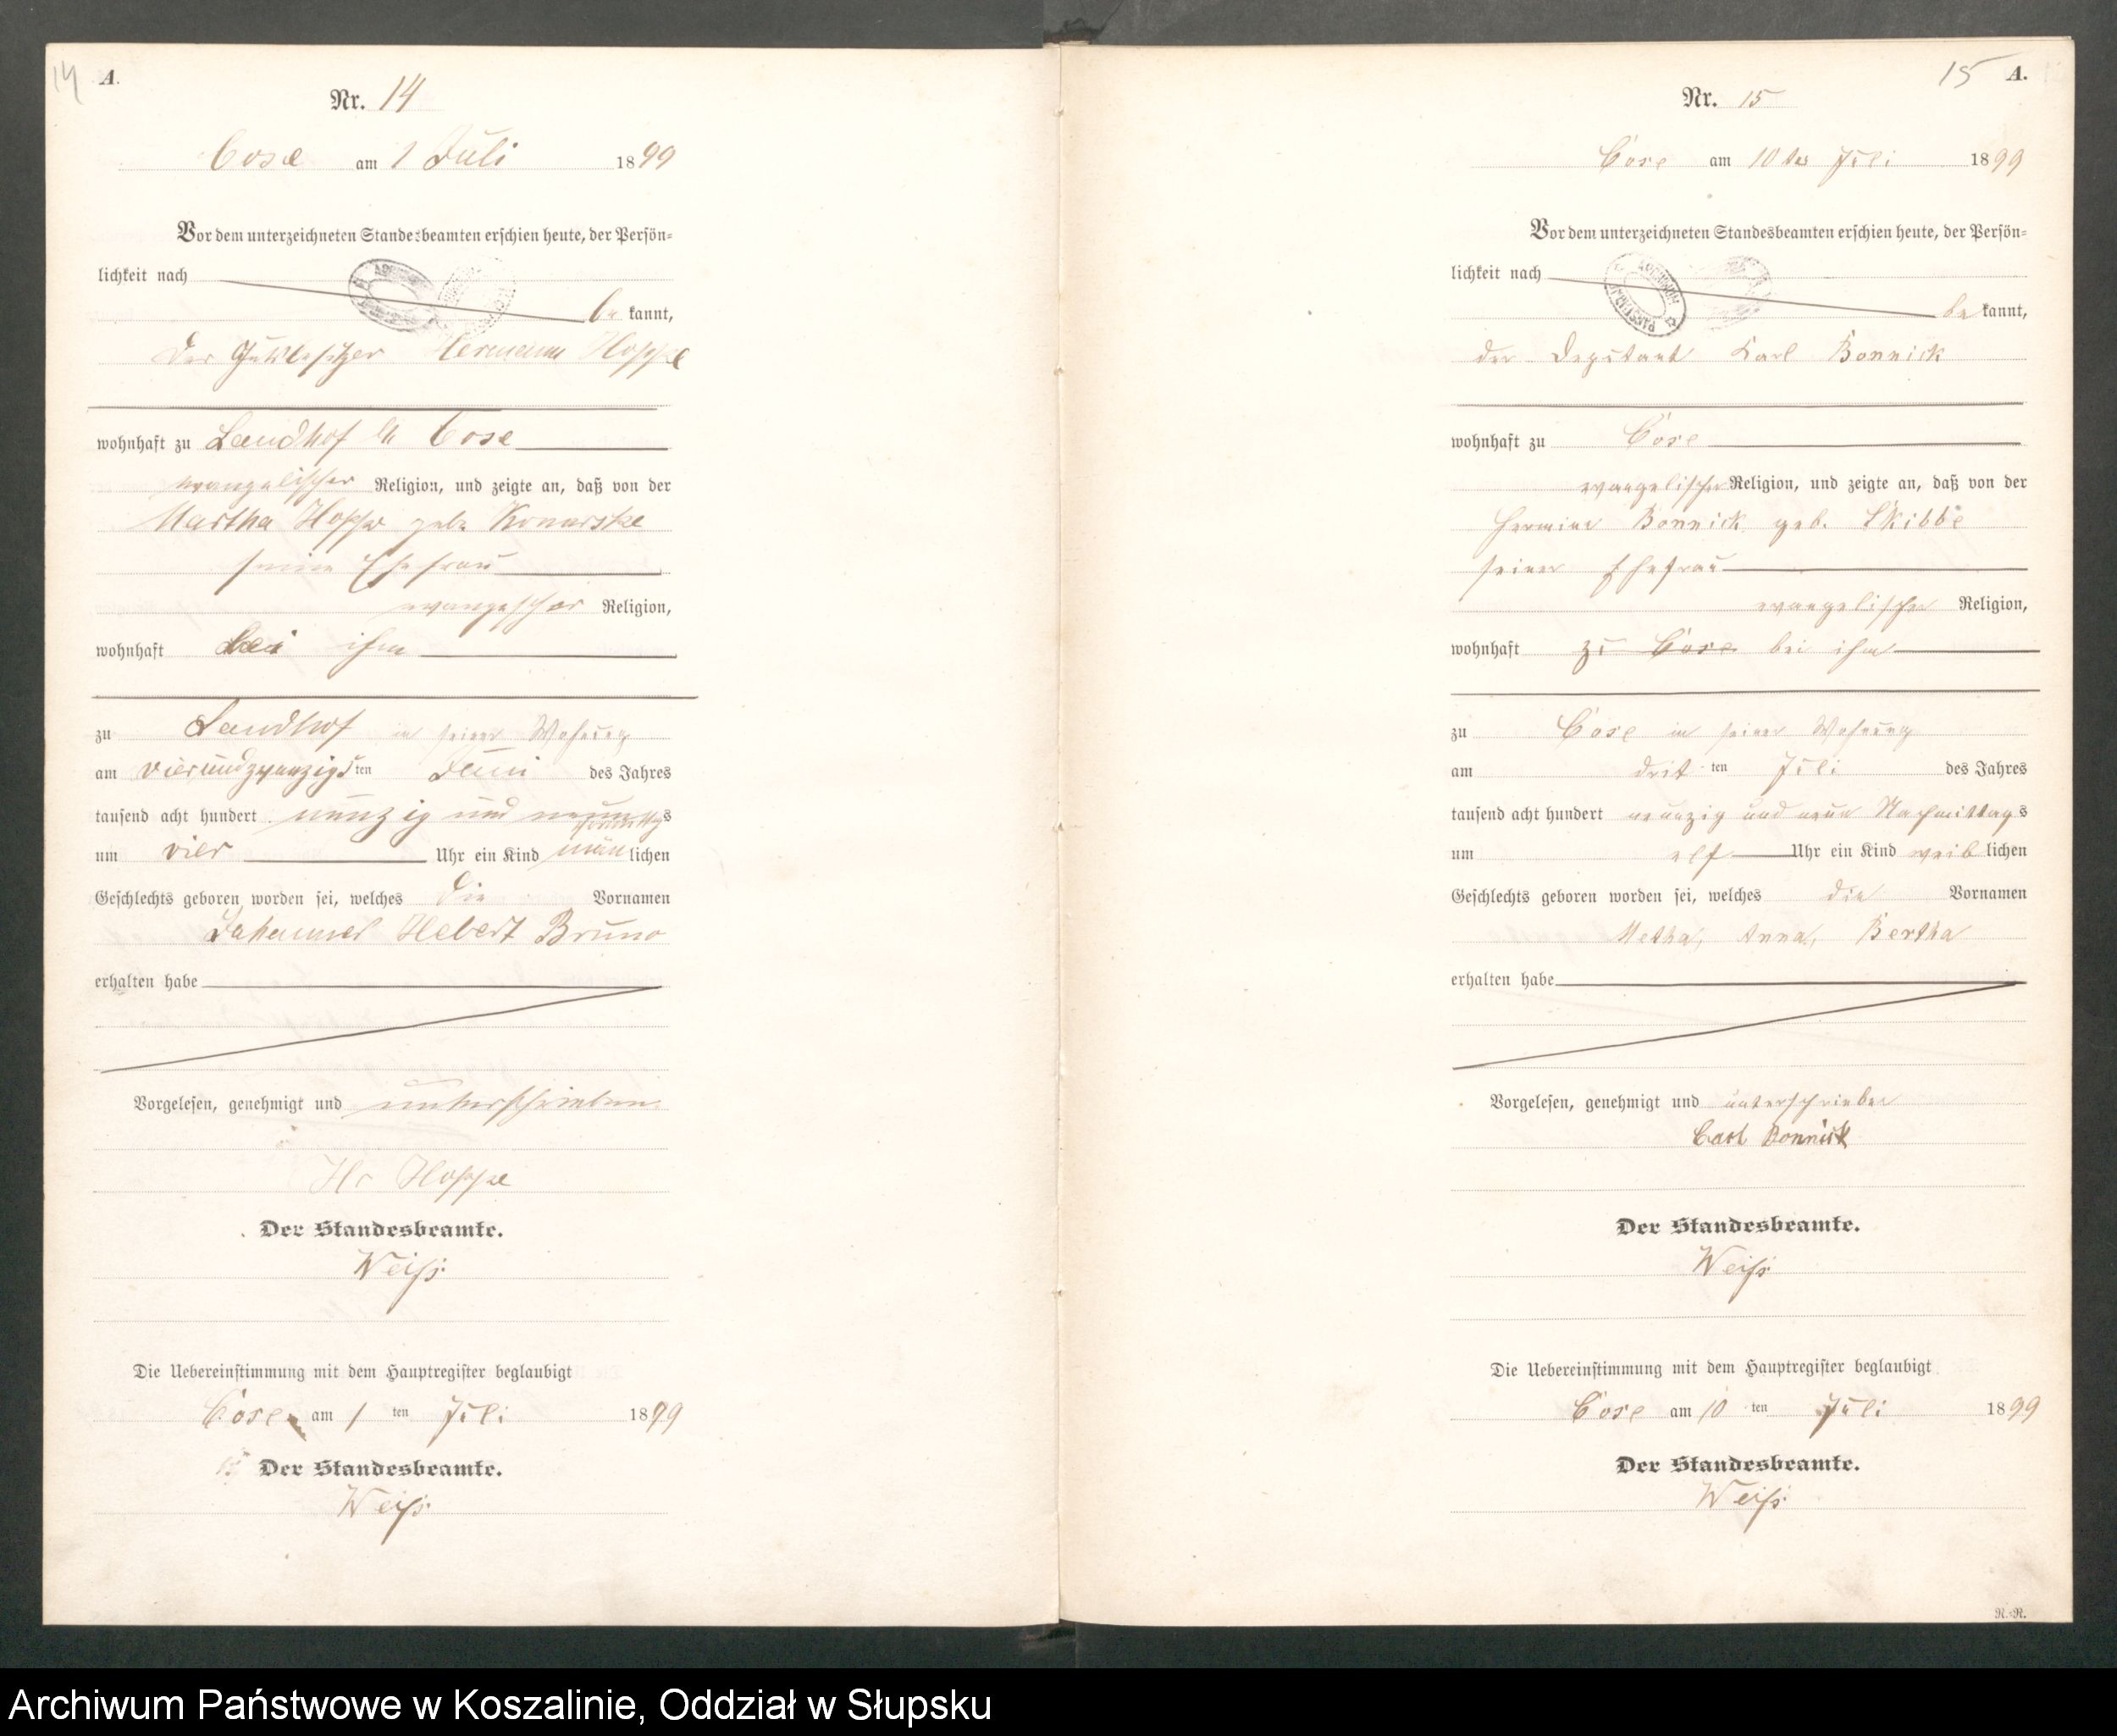 14 A.
Nr. 14
Cose am 1 Juli 1899
Vor dem unterzeichneten Standesbeamten erschien heute, der Persön-
lichkeit nach
be kannt,
Der Gutsbesitzer Hermann Hoppe
wohnhaft zu Landhof Cose
evangelischer Religion, und zeigte an, daß von der
Martha Hoppe geb. Konarske
seine Ehefrau
Religion,
wohnhaft bei ihm
zu Landhof in seiner Wohnung
am vierundzwanzigsten Juni des Jahres
tausend acht hundert neunzig und neun
um vier Uhr ein Kind män lichen
Geschlechts geboren worden sei, welches die Vornamen
Johannes Hebert Bruno
erhalten habe
Vorgelesen, genehmigt und unterschrieben
Hoppe
Der Standesbeamte.
Weiß
Die Uebereinstimmung mit dem Hauptregister beglaubigt
Cose am 1 ten Juli 1899
Der Standesbeamte.
Weiß
15 A.
Nr. 15
Cose am 10 ten Juli 1899
Vor dem unterzeichneten Standesbeamten erschien heute, der Persön-
lichkeit nach
be kannt,
der Deputant Karl Bonnick
wohnhaft zu Cose
evangelischer Religion, und zeigte an, daß von der
Hermine Bonnick geb. Skibbe
seiner Ehefrau
evangelischer Religion,
wohnhaft zu Cose bei ihm
zu Cose in seiner Wohnung
am drit ten Juli des Jahres
tausend acht hundert neunzig und neun Nachmittags
um elf Uhr ein Kind weib lichen
Geschlechts geboren worden sei, welches die Vornamen
Metha, Anna, Bertha
erhalten habe
Vorgelesen, genehmigt und unterschrieben
Carl Bonnick
Der Standesbeamte.
Weiß
Die Uebereinstimmung mit dem Hauptregister beglaubigt
Cose am 10 ten Juli 1899
Der Standesbeamte.
Weiß
R.-R.
Archiwum Państwowe w Koszalinie, Oddział w Słupsku